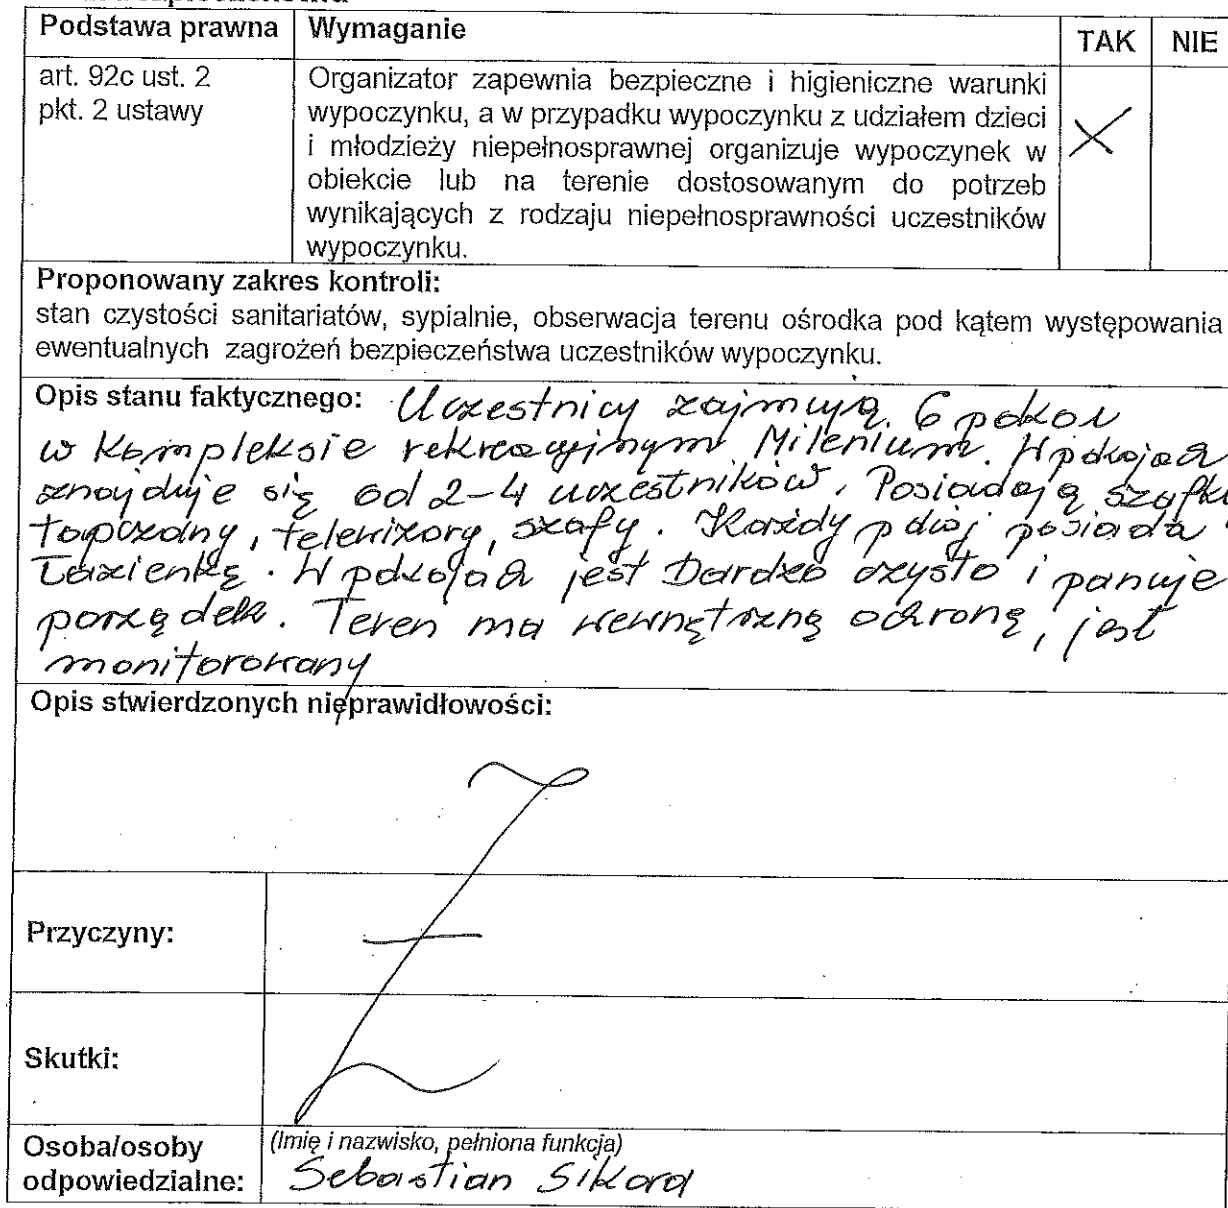 Podstawa prawna Wymaganie TAK NIE
art. 92c ust. 2
pkt. 2 ustawy
Organizator zapewnia bezpieczne i higieniczne warunki
wypoczynku, a w przypadku wypoczynku z udziałem dzieci
i młodzieży niepełnosprawnej organizuje wypoczynek w
obiekcie lub na terenie dostosowanym do potrzeb
wynikających z rodzaju niepełnosprawności uczestników
wypoczynku.
X
Proponowany zakres kontroli:
stan czystości sanitariatów, sypialnie, obserwacja terenu ośrodka pod kątem występowania
ewentualnych zagrożeń bezpieczeństwa uczestników wypoczynku.
Opis stanu faktycznego: Uczestnicy zajmują 6 pokoi
w kompleksie rekreacyjnym Milenium. W pokojach
znajduje się od 2-4 uczestników. Posiadają szafki
topczany, telewizory, szafy. Każdy pokój posiada
Łazienkę. W pokojach jest bardzo czysto i panuje
porządek. Teren ma wewnętrzną ochronę, jest
monitorowany
Opis stwierdzonych nieprawidłowości:
Przyczyny:
Skutki:
Osoba/osoby
odpowiedzialne:
(Imię i nazwisko, pełniona funkcja)
Sebastian Sikora